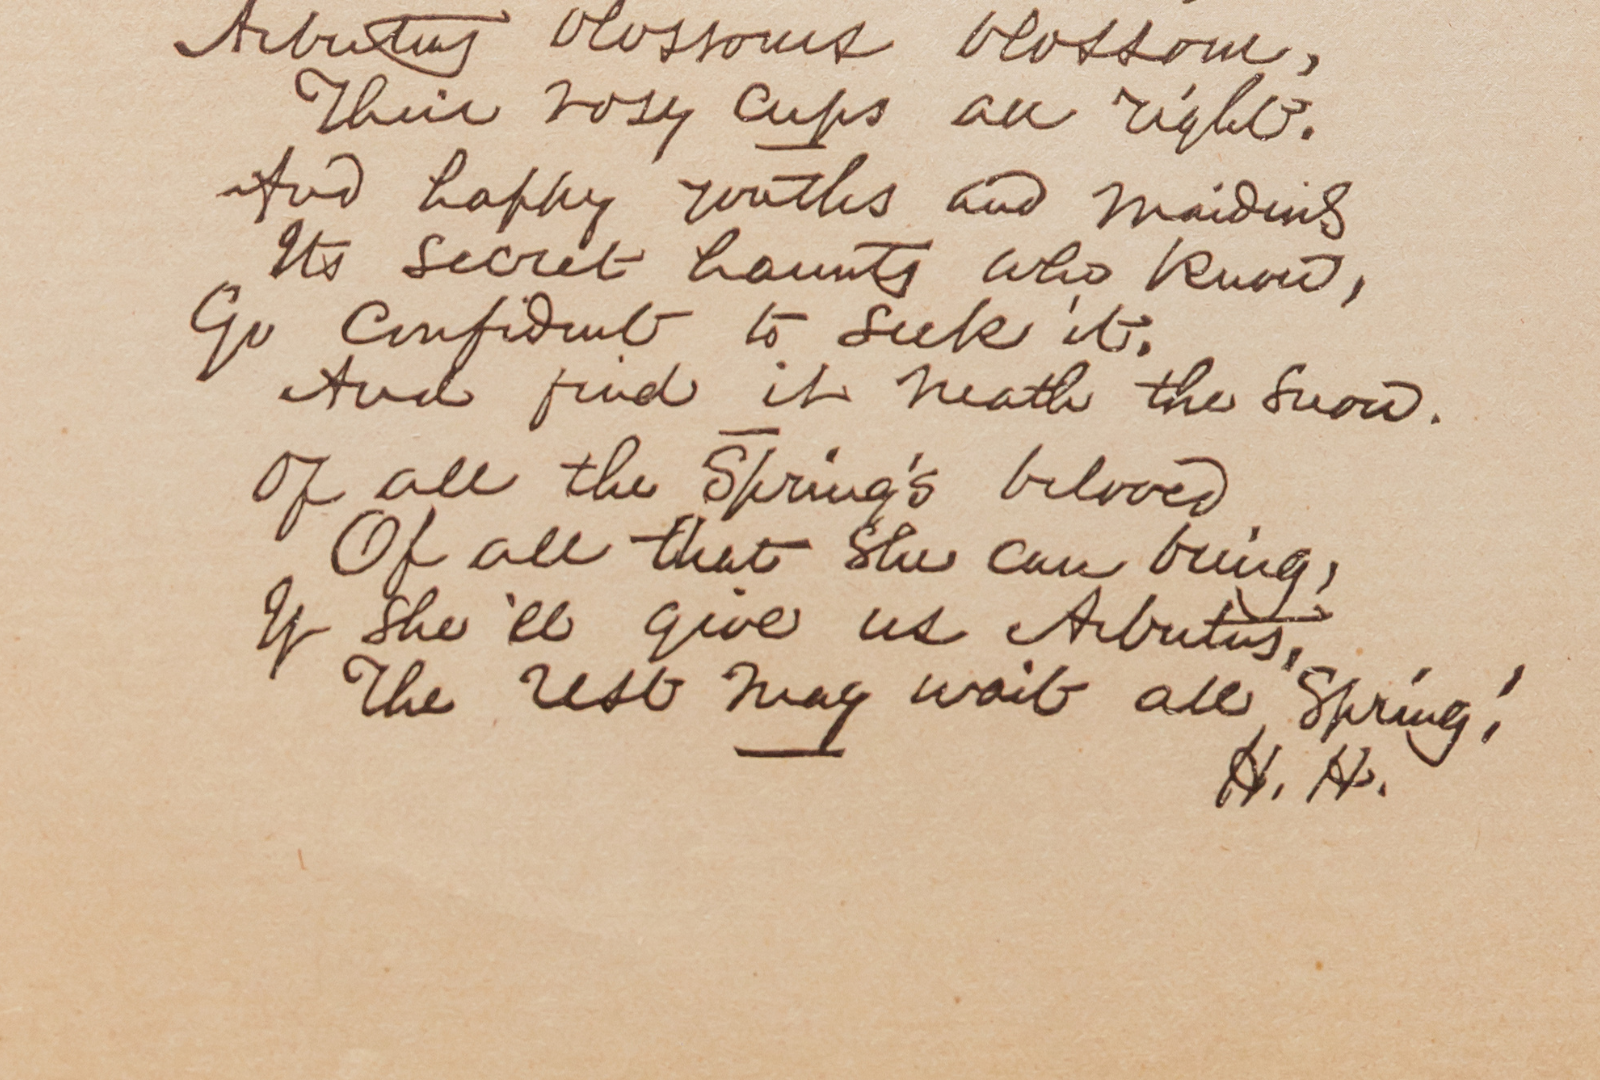 Arbutus blossoms blossom,
Their rosy cups all right.
And happy youths and maidens
Its secret haunts who know,
Go confident to seek it.
And find it neath the snow.
Of all the Spring's beloved
Of all that she can bring,
If she'll give us Arbutus,
The rest may wait all Spring!
H. H.